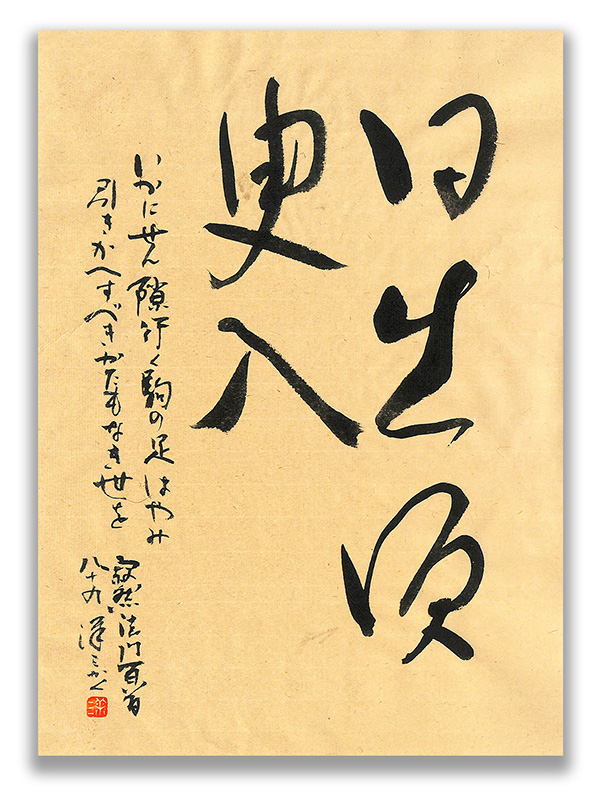 日出須
臾入
いかにせん隙行く駒の足はやみ
引きかへすべきかたもなき世を
寂然法門百首
八十九 洋三かく